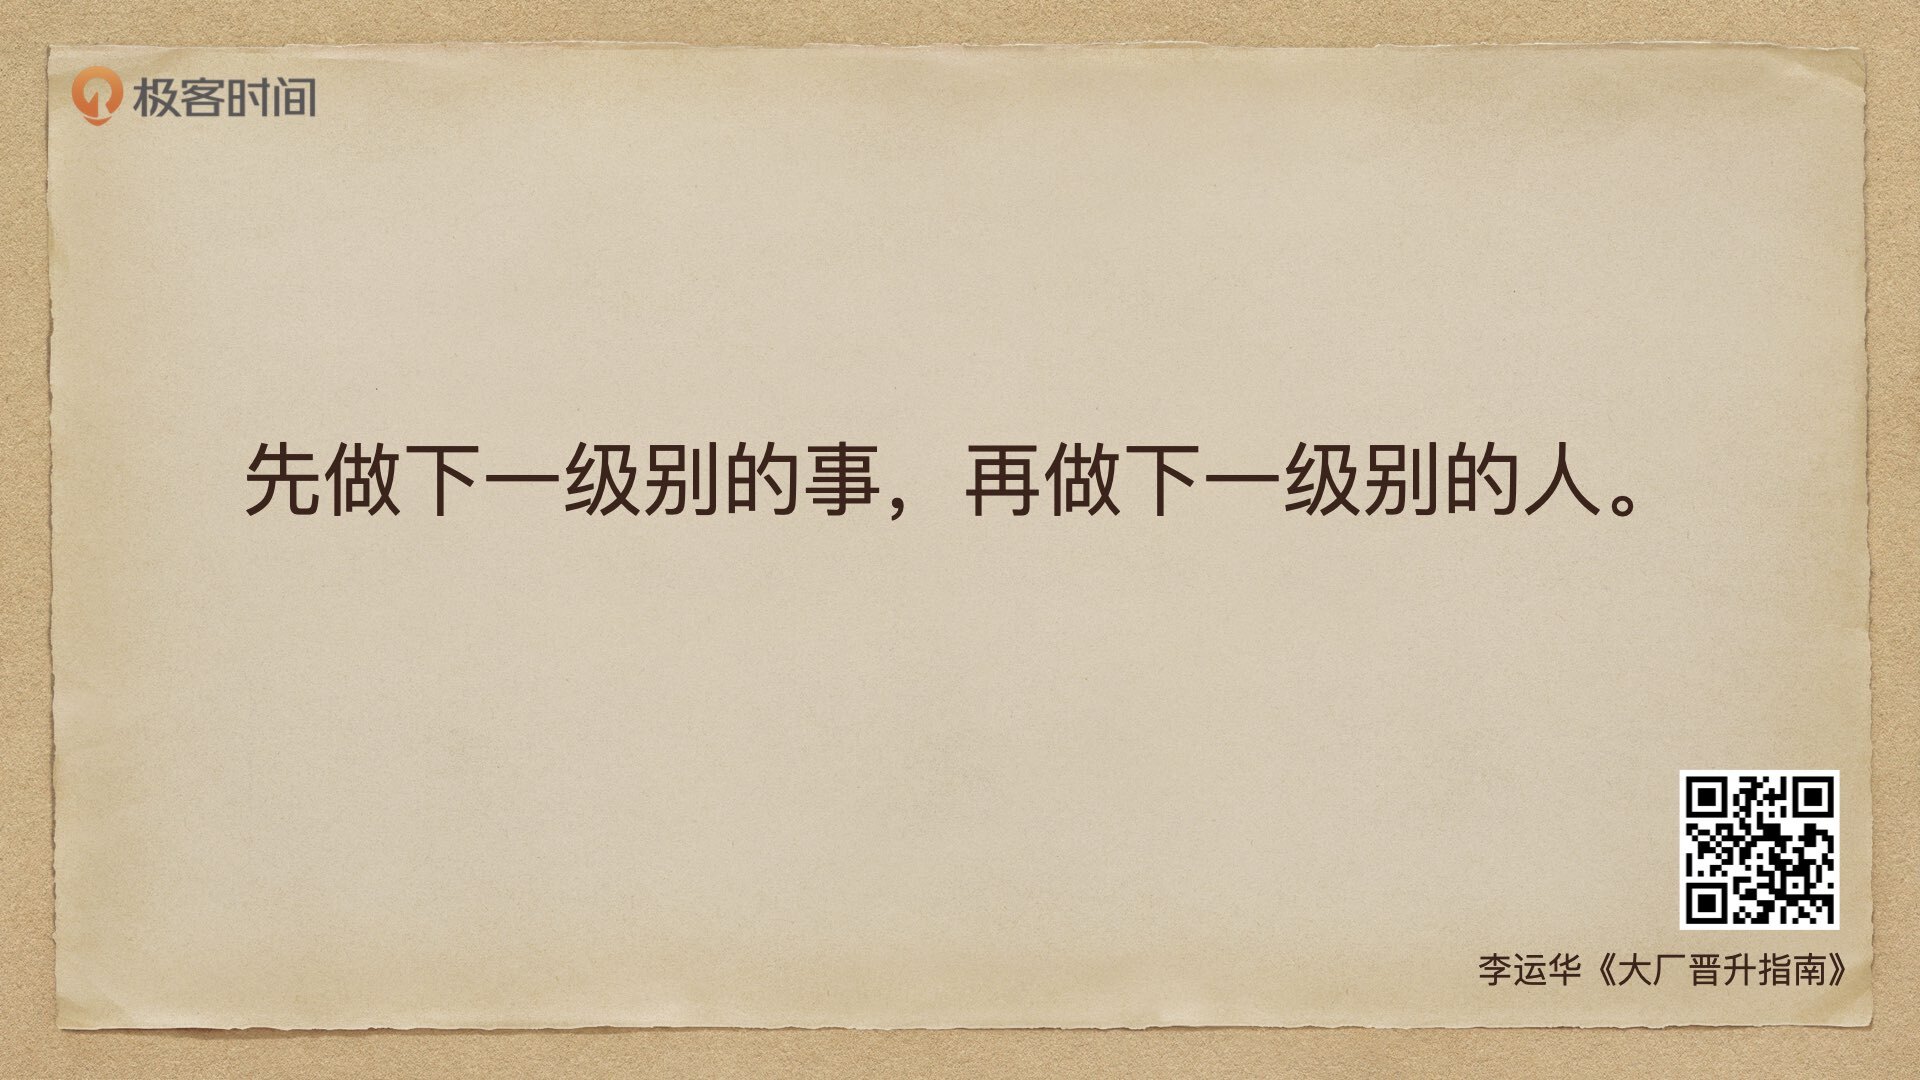 极客时间
先做下一级别的事，再做下一级别的人。
李运华《大厂晋升指南》